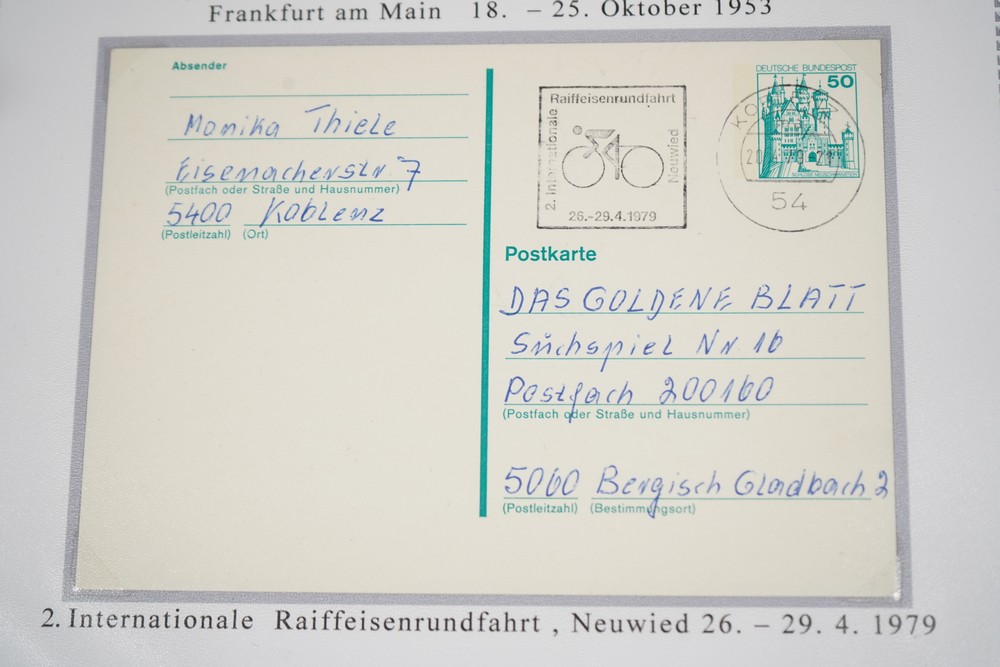 Frankfurt am Main 18. – 25. Oktober 1953
Absender
Monika Thiele
Eisenacherstr 7
(Postfach oder Straße und Hausnummer)
5400 Koblenz
(Postleitzahl) (Ort)
2. Internationale
Raiffeisenrundfahrt
Neuwied
26.-29.4.1979
DEUTSCHE BUNDESPOST
50
54
Postkarte
DAS GOLDENE BLATT
Suchspiel Nr. 16
Postfach 200160
(Postfach oder Straße und Hausnummer)
5060 Bergisch Gladbach 2
(Postleitzahl) (Bestimmungsort)
2. Internationale Raiffeisenrundfahrt , Neuwied 26. – 29. 4. 1979